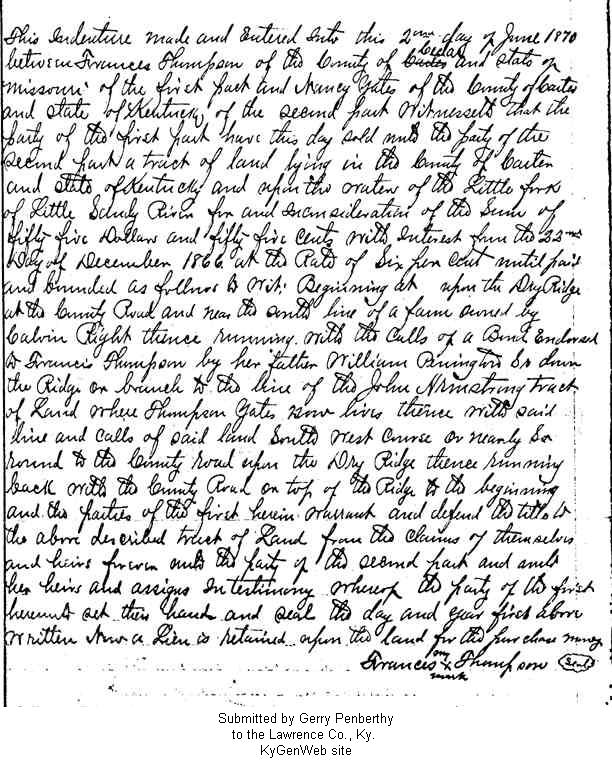 This Indenture made and Entered Into this 2nd day of June 1870
between Frances Thompson of the County of Cedar and state of
Missouri of the first part and Nancy Yates of the County of Carter
and state of Kentucky of the second part Witnesseth that the
party of the first part have this day sold unto the party of the
second part a tract of land lying in the County of Carter
and state of Kentucky and upon the waters of the Little fork
of Little Sandy River for and Inconsideration of the Sum of
fifty five Dollars and fifty five cents with Interest from the 22nd
Day of December 1866 at the Rate of Six per Cent until paid
and bounded as follows to Wit: Beginning at upon the Dry Ridge
at the County Road and near the south line of a farm owned by
Calvin Right thence running with the Calls of a Bond Endorsed
to Francis Thompson by her father William Penington Sr down
the Ridge or branch to the line of the John Armstrong tract
of Land where Thompson Yates now lives thence with said
line and calls of said land South West Course or nearly So
round to the County road upon the Dry Ridge thence running
back with the County Road on top of the Ridge to the beginning
and the parties of the first herein warrant and defend the title to
the above described tract of Land from the claims of themselves
and heirs forever unto the party of the second part and unto
her heirs and assigns In testimony whereof the party of the first
hereunto set their hand and seal the day and year first above
written Now a Lien is retained upon the land for the purchase money
Francis X Thompson Seal
mark
Submitted by Gerry Penberthy
to the Lawrence Co., Ky.
KyGenWeb site